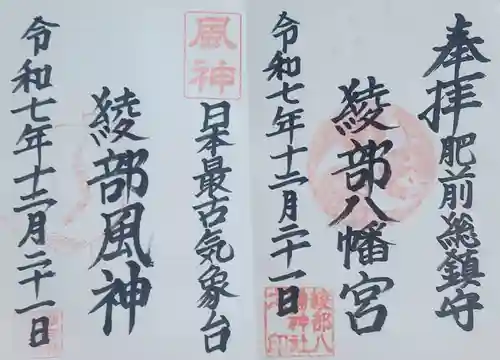 奉拝
肥前総鎮守
綾部八幡宮
令和七年十二月二十一日
綾部八幡神社之印
風神
日本最古気象台
綾部風神
令和七年十二月二十一日